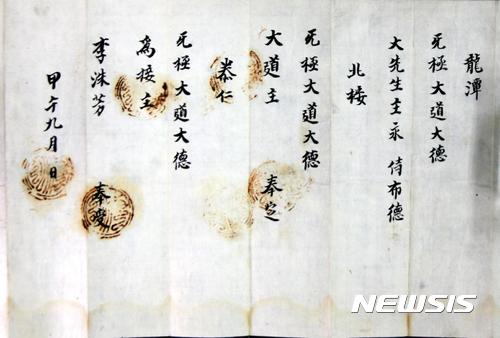 龍潭
无極大道大德
大先生主永 侍布德
北接
无極大道大德
大道主 奉定
泰仁
无極大道大德
為接主
李洙芳 奉受
甲午九月 日
NEWSIS